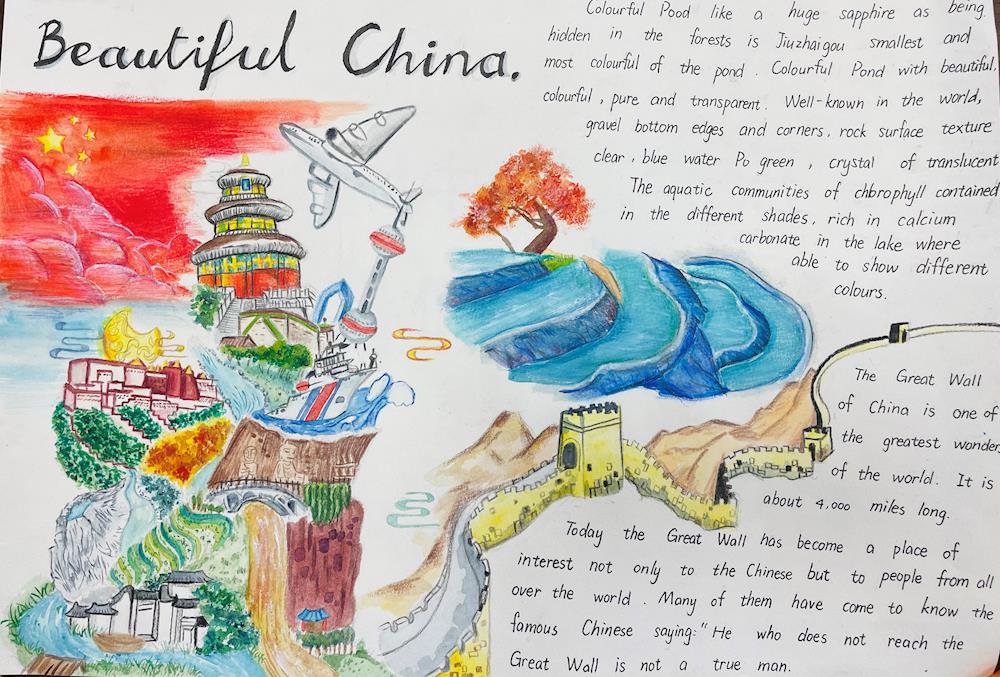 Beautiful China.
Colourful Pood like a huge sapphire as being.
hidden in the forests is Jiuzhaigou smallest and
most colourful of the pond. Colourful Pond with beautiful,
colourful, pure and transparent. Well-known in the world,
gravel bottom edges and corners, rock surface texture
clear, blue water Po green, crystal of translucent
The aquatic communities of chbrophyll contained
in the different shades, rich in calcium
carbonate in the lake where
able to show different
colours.
The Great Wall
of China is one of
the greatest wonders
of the world. It is
about 4,000 miles long.
Today the Great Wall has become a place of
interest not only to the Chinese but to people from all
over the world. Many of them have come to know the
famous Chinese saying:"He who does not reach the
Great Wall is not a true man.